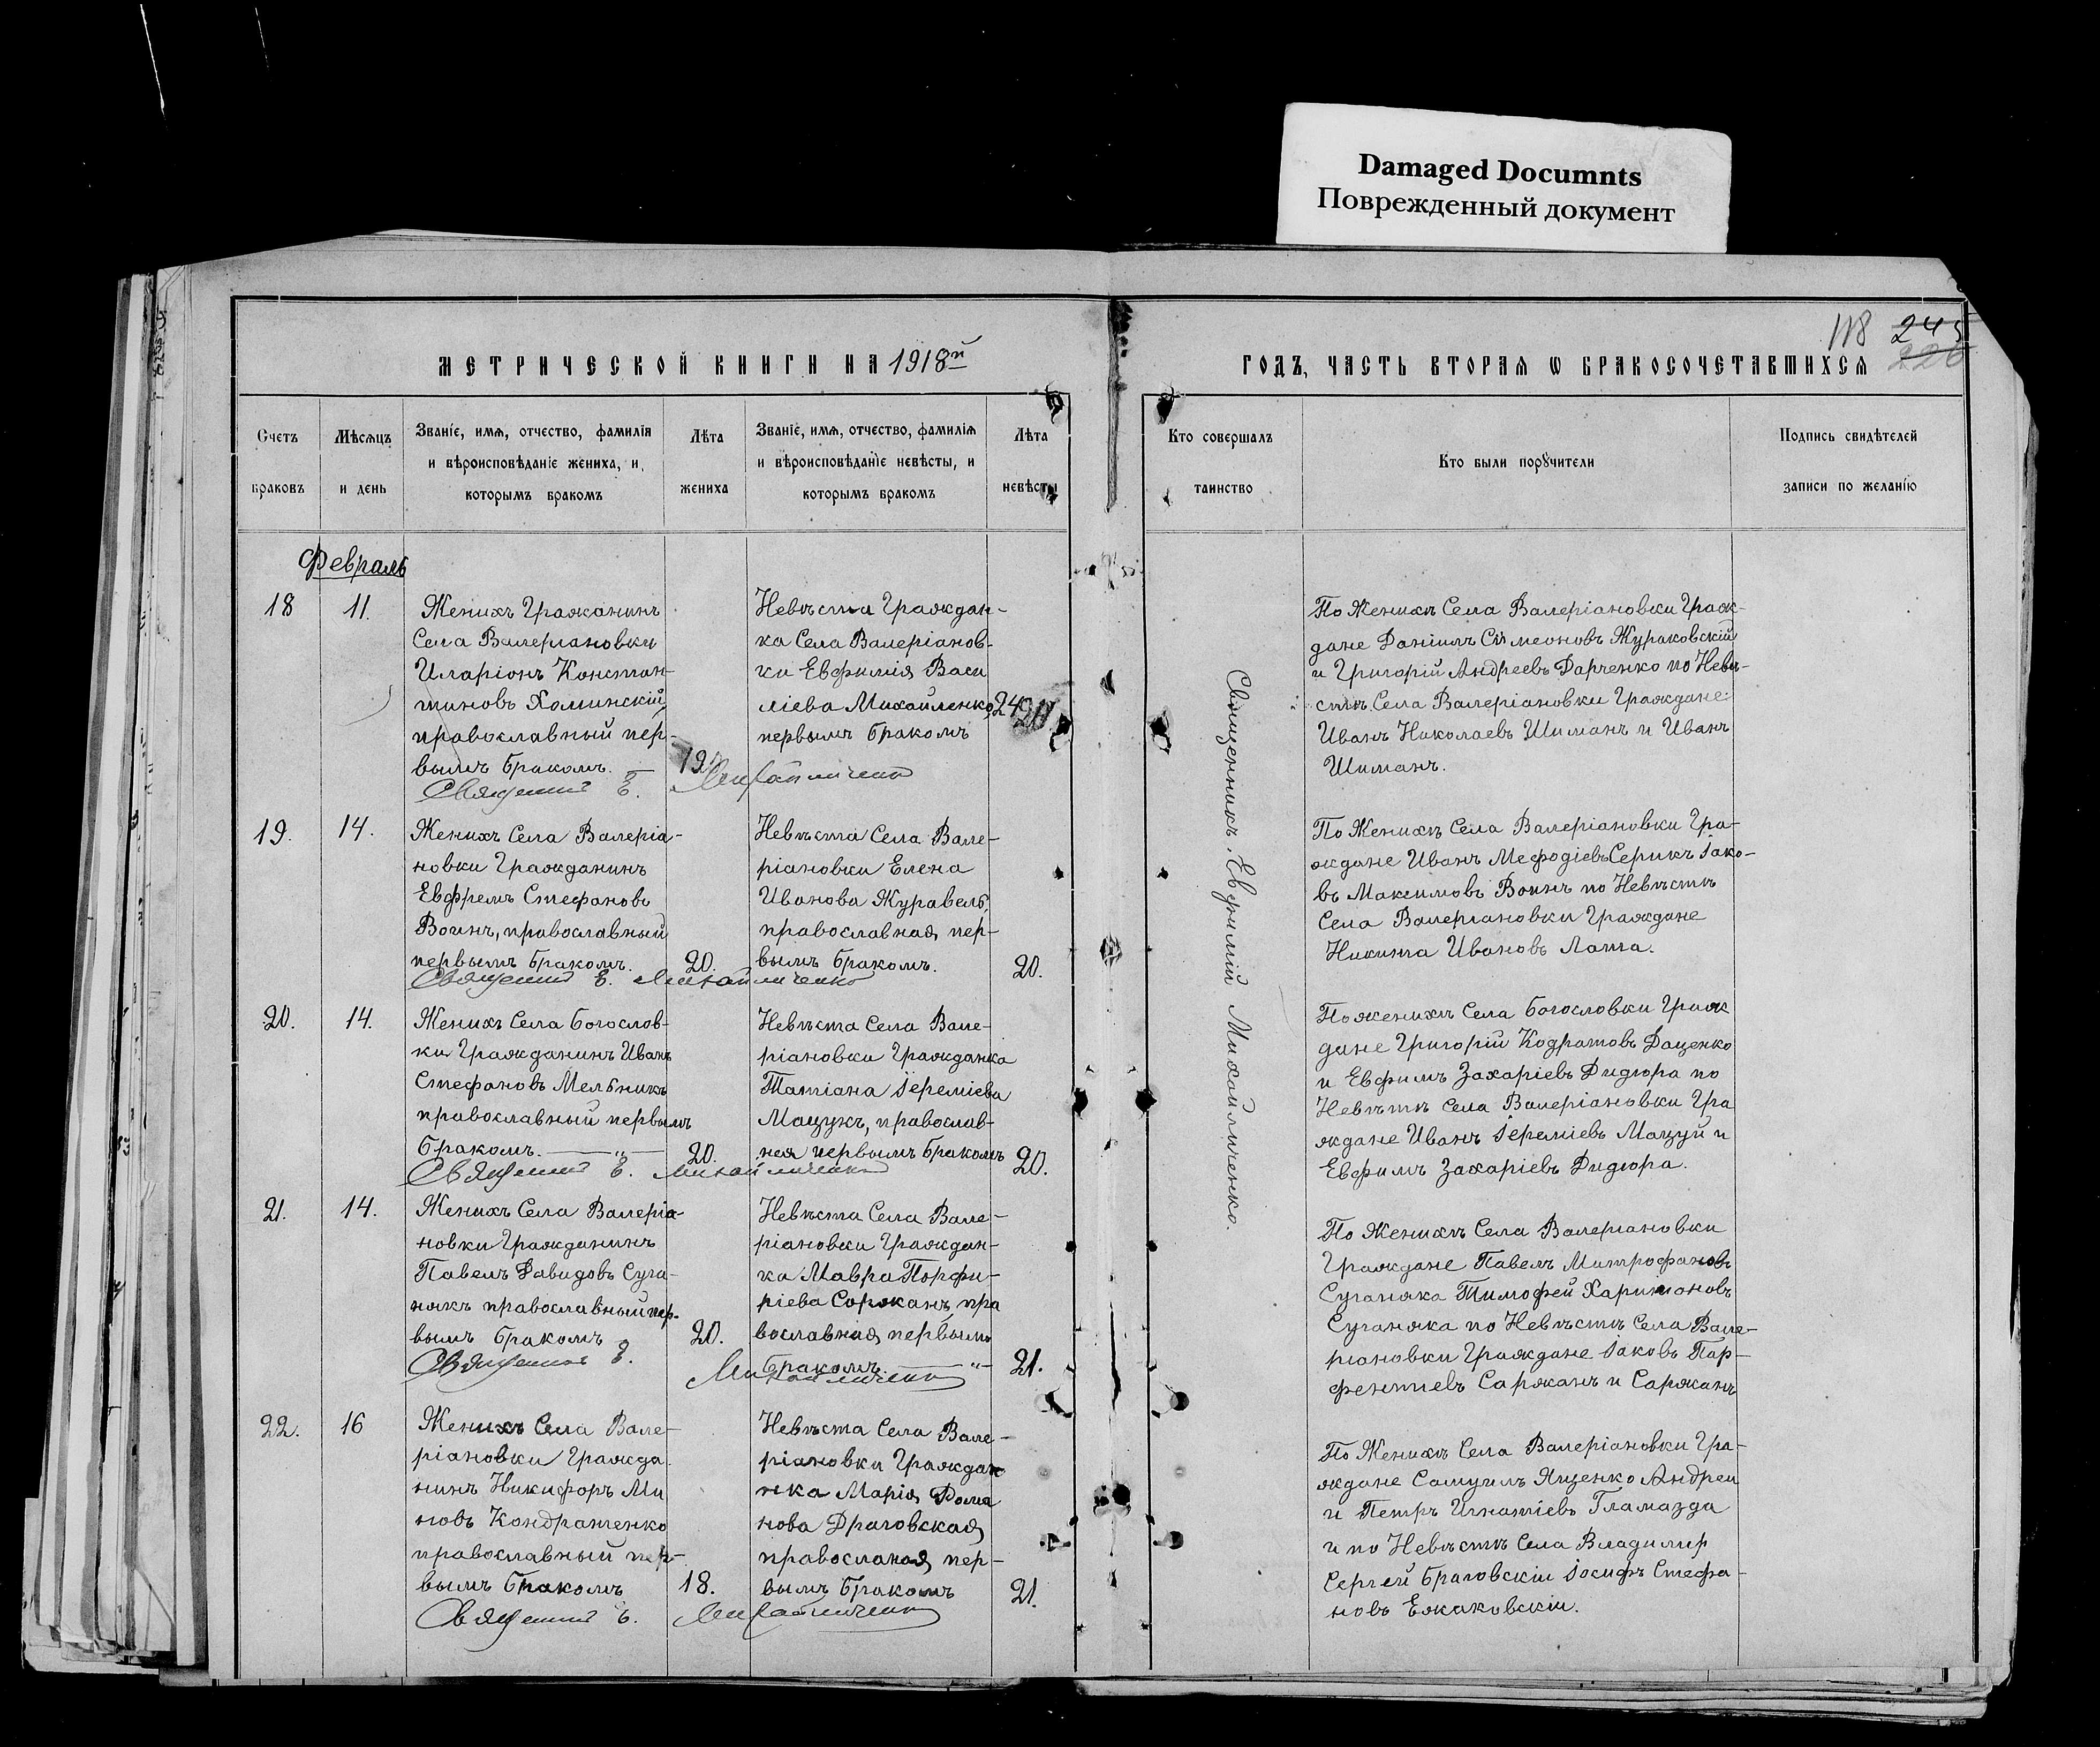 Damaged Documnts
Поврежденный документ
118 245
226
МЕТРИЧЕСКОЙ КНИГИ НА 1918й
ГОДЪ, ЧАСТЬ ВТОРАЯ Ѡ БРАКОСОЧЕТАВШИХСЯ
Счетъ
браковъ
Мѣсяцъ
и день
Званіе, имя, отчество, фамилія
и вѣроисповѣданіе жениха, и
которымъ бракомъ
Лѣта
жениха
Званіе, имя, отчество, фамилія
и вѣроисповѣданіе невѣсты, и
которымъ бракомъ
Лѣта
невѣсты
Кто совершалъ
таинство
Кто были порꙋчители
Подпись свидѣтелей
записи по желанію
Февраль
18
11.
Женихъ Гражанинъ
Села Валериановки
Иларіонъ Констан-
тиновъ Хоминскій
православный пер-
вымъ бракомъ.
19.
Невѣста Граждан-
ка Села Валеріанов-
ки Евфимія Васи
ліева Михайленко
первымъ бракомъ
24
Священник Е. Михайличенко
По Женихѣ Села Валеріановки Граж-
дане Даніилъ Симеоновъ Жураковскій
и Григорій Андреевъ Дарченко по Невѣ-
стѣ Села Валеріановки Граждане
Иванъ Николаевъ Шиманъ и Иванъ
Шиманъ.
19.
14.
Женихъ Села Валеріа-
новки Гражданинъ
Евфремъ Стефановъ
Воинъ, православный
первымъ бракомъ.
20.
Невѣста Села Вале-
ріановки Елена
Иванова Журавель,
православная пер-
вымъ бракомъ.
20.
Священник Е. Михайличенко
По Женихѣ Села Валеріановки Гра-
ждане Иванъ Мефодіевъ Серикъ Іако-
въ Максимовъ Воинъ по Невѣстѣ
Села Валериановки Граждане
Никита Ивановъ Лапта.
20.
14.
Женихъ Села Богослов-
ки Гражданинъ Иванъ
Стефановъ Мельникъ
православный первымъ
бракомъ. — „ —
20.
Невѣста Села Вале-
ріановки Гражданка
Татіана Іереміева
Мацукъ, православ-
ная первымъ бракомъ
20.
Священник Е. Михайличенко
По женихѣ Села Богословки Граж
дане Григорій Кодратовъ Даценко
и Евфимъ Захаріевъ Дидюра по
Невѣстѣ Села Валеріановки Гра
ждане Иванъ Іереміевъ Мацуй и
Евфимъ Захаріевъ Дидюра.
21.
14.
Женихъ Села Валеріа-
новки Гражданинъ
Павелъ Давидовъ Суга-
някъ православный пер-
вымъ бракомъ
20.
Невѣста Села Вале-
ріановки Граждан-
ка Мавра Порфи-
ріева Соржанъ пра
вославная первымъ
бракомъ. — „ —
21.
Священник Е. Михайличенко
По Женихѣ Села Валеріановки
Граждане Павелъ Митрофановъ
Суганяка Тимофей Харитоновъ
Суганяка по Невѣстѣ Села Вале-
ріановки Граждане Іаковъ Пар-
фентиевъ Саржанъ и Саржанъ
22.
16
Женихъ Села Вале-
ріановки Гражда
нинъ Никифоръ Ми
новъ Кондратенко
православный пер-
вымъ бракомъ
18.
Невѣста Села Вале-
ріановки Граждан
нка Марія Рома
нова Драговская
правосланая пер-
вымъ бракомъ
21.
Священник Е. Михайличенко
По Женихѣ Села Валеріановки Гра-
ждане Самуилъ Яценко Андреи
и Петръ Игнатіевъ Гламазда
и по Невѣстѣ Села Владимир
Сергей Браговскіи Іосифъ Стефа-
новъ Ежаковскіи.
Священникъ, Евфимій Михайличенко.